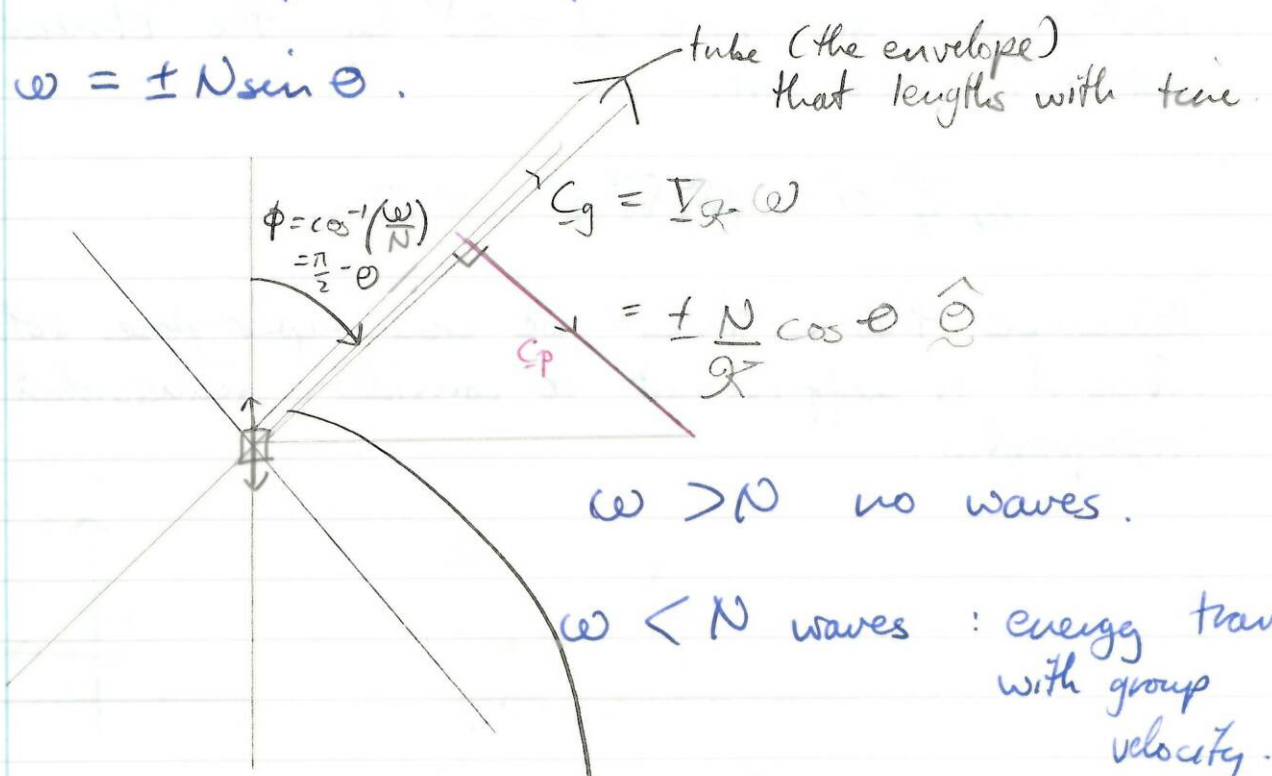 ω = ± N sin θ .
tube (the envelope)
that lengths with time
φ = cos⁻¹(ω/N)
= π/2 - θ
c_g = ∇_𝒦 ω
= ± N/𝒦 cos θ θ̂
c_p
ω > N no waves .
ω < N waves : energy trav
with group
velocity .